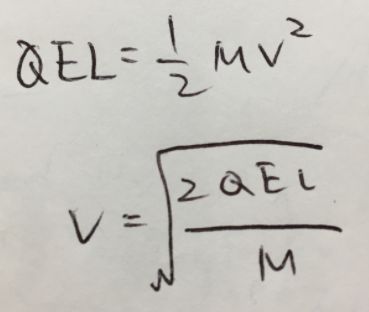 QEL = 1/2 MV²
V = √(2QEL/M)